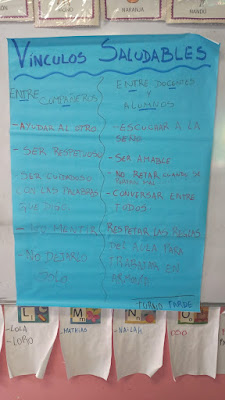 NARANJA
VÍNCULOS SALUDABLES
ENTRE
COMPAÑEROS
- AYUDAR AL OTRO
- SER RESPETUOSO
- SER CUIDADOSO
CON LAS PALABRAS
QUE DIGO
- NO MENTIR
- NO DEJARLO
SOLO
ENTRE DOCENTES
Y
ALUMNOS
- ESCUCHAR A LA
SEÑO
- SER AMABLE
- NO RETAR CUANDO DE
- CONVERSAR ENTRE
TODOS
RESPETAR LAS REGLAS
DEL AULA PARA
TRABAJAR EN
ARMONÍA
TURNO TARDE
L
M
N
- LOLA
- LORO
- MATHIAS